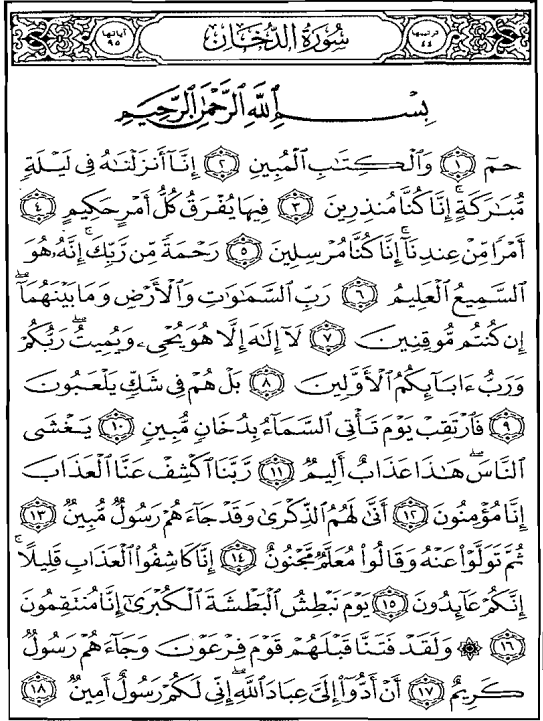 ترتيبها ٤٤ سُورَةُ الدُّخَان آياتها ٩٥
بِسْمِ اللَّهِ الرَّحْمَٰنِ الرَّحِيمِ
حمٓ ١ وَٱلْكِتَٰبِ ٱلْمُبِينِ ٢ إِنَّآ أَنزَلْنَٰهُ فِى لَيْلَةٍ
مُّبَٰرَكَةٍ ۚ إِنَّا كُنَّا مُنذِرِينَ ٣ فِيهَا يُفْرَقُ كُلُّ أَمْرٍ حَكِيمٍ ٤
أَمْرًا مِّنْ عِندِنَآ ۚ إِنَّا كُنَّا مُرْسِلِينَ ٥ رَحْمَةً مِّن رَّبِّكَ ۚ إِنَّهُۥ هُوَ
ٱلسَّمِيعُ ٱلْعَلِيمُ ٦ رَبِّ ٱلسَّمَٰوَٰتِ وَٱلْأَرْضِ وَمَا بَيْنَهُمَآ ۖ
إِن كُنتُم مُّوقِنِينَ ٧ لَآ إِلَٰهَ إِلَّا هُوَ يُحْىِۦ وَيُمِيتُ ۖ رَبُّكُمْ
وَرَبُّ ءَابَآئِكُمُ ٱلْأَوَّلِينَ ٨ بَلْ هُمْ فِى شَكٍّ يَلْعَبُونَ
٩ فَٱرْتَقِبْ يَوْمَ تَأْتِى ٱلسَّمَآءُ بِدُخَانٍ مُّبِينٍ ١٠ يَغْشَى
ٱلنَّاسَ ۖ هَٰذَا عَذَابٌ أَلِيمٌ ١١ رَّبَّنَا ٱكْشِفْ عَنَّا ٱلْعَذَابَ
إِنَّا مُؤْمِنُونَ ١٢ أَنَّىٰ لَهُمُ ٱلذِّكْرَىٰ وَقَدْ جَآءَهُمْ رَسُولٌ مُّبِينٌ ١٣
ثُمَّ تَوَلَّوْا۟ عَنْهُ وَقَالُوا۟ مُعَلَّمٌ مَّجْنُونٌ ١٤ إِنَّا كَاشِفُوا۟ ٱلْعَذَابِ قَلِيلًا ۚ
إِنَّكُمْ عَآئِدُونَ ١٥ يَوْمَ نَبْطِشُ ٱلْبَطْشَةَ ٱلْكُبْرَىٰٓ إِنَّا مُنتَقِمُونَ
١٦ ۞ وَلَقَدْ فَتَنَّا قَبْلَهُمْ قَوْمَ فِرْعَوْنَ وَجَآءَهُمْ رَسُولٌ
كَرِيمٌ ١٧ أَنْ أَدُّوٓا۟ إِلَىَّ عِبَادَ ٱللَّهِ ۖ إِنِّى لَكُمْ رَسُولٌ أَمِينٌ ١٨